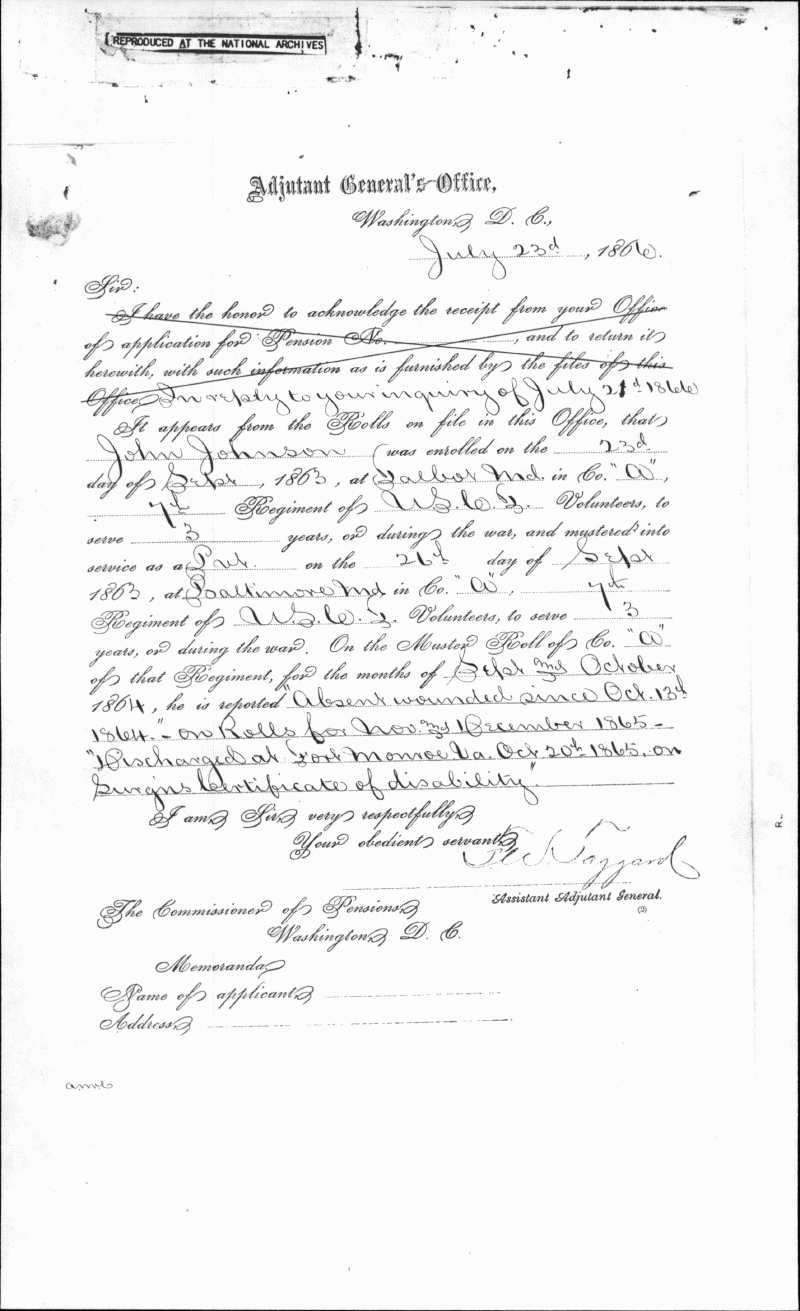 REPRODUCED AT THE NATIONAL ARCHIVES
Adjutant General's Office,
Washington, D. C.,
July 23d, 1866.
Sir:
I have the honor to acknowledge the receipt from your Office
of application for Pension No. , and to return it
herewith, with such information as is furnished by the files of this
Office. In reply to your inquiry of July 21st 1866
It appears from the Rolls on file in this Office, that
John Johnson was enrolled on the 23d
day of Sept, 1863, at Talbot Md. in Co. "A",
7th Regiment of U.S.C.T. Volunteers, to
serve 3 years, or during the war, and mustered into
service as a Pvt. on the 26th day of Sept
1863, at Baltimore Md in Co. "A", 7th
Regiment of U.S.C.T. Volunteers, to serve 3
years, or during the war. On the Muster Roll of Co. "A"
of that Regiment, for the months of Sept and October
1864, he is reported "Absent wounded since Oct. 13th
1864." - on Rolls for Nov. and December 1865 -
"Discharged at Fort Monroe Va. Oct 20th 1865, on
Surgns Certificate of disability"
I am, Sir, very respectfully,
Your obedient servant,
Taggard
Assistant Adjutant General.
(3)
The Commissioner of Pensions,
Washington, D. C.
Memoranda,
Name of applicant,
Address,